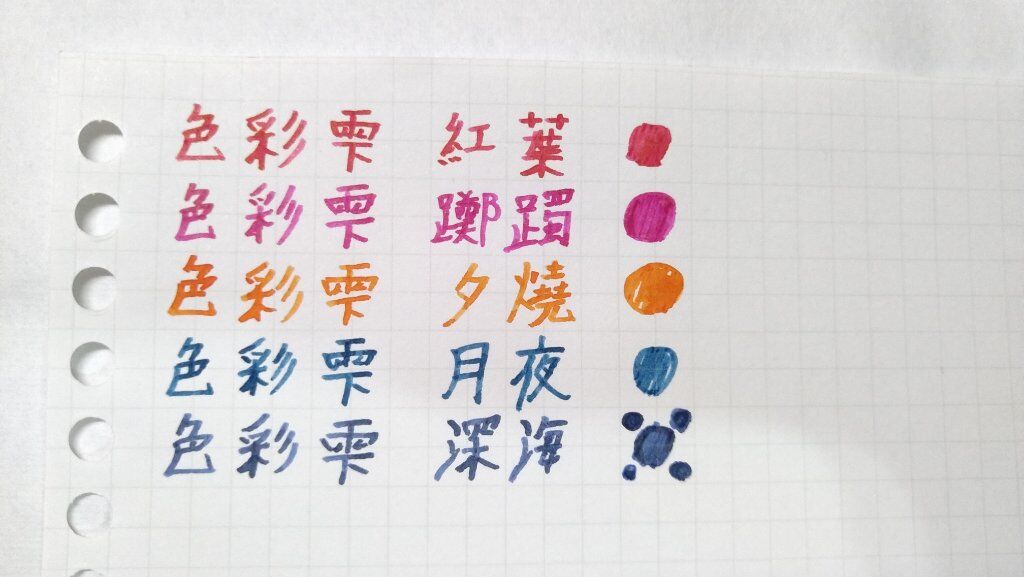 色彩雫 紅葉
色彩雫 躑躅
色彩雫 夕燒
色彩雫 月夜
色彩雫 深海